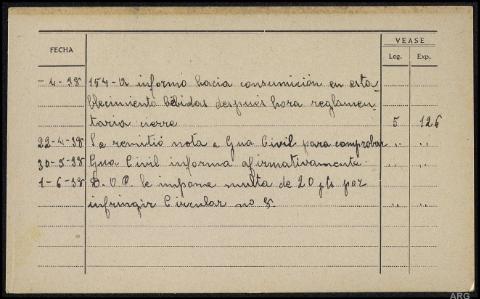 FECHA VEASE
Leg. Exp.
-4-38 154-12 informo hacia consumición en esta-
blecimiento bebidas despues hora reglamen-
taria cierre 5 126
22-4-38 Se remitió nota a Gua Civil para comprobar " "
30-5-38 Gua Civil informa afirmativamente " "
1-6-38 D.O.P. le impone multa de 20 pts por
infringir Circular no 5. " "
ARG